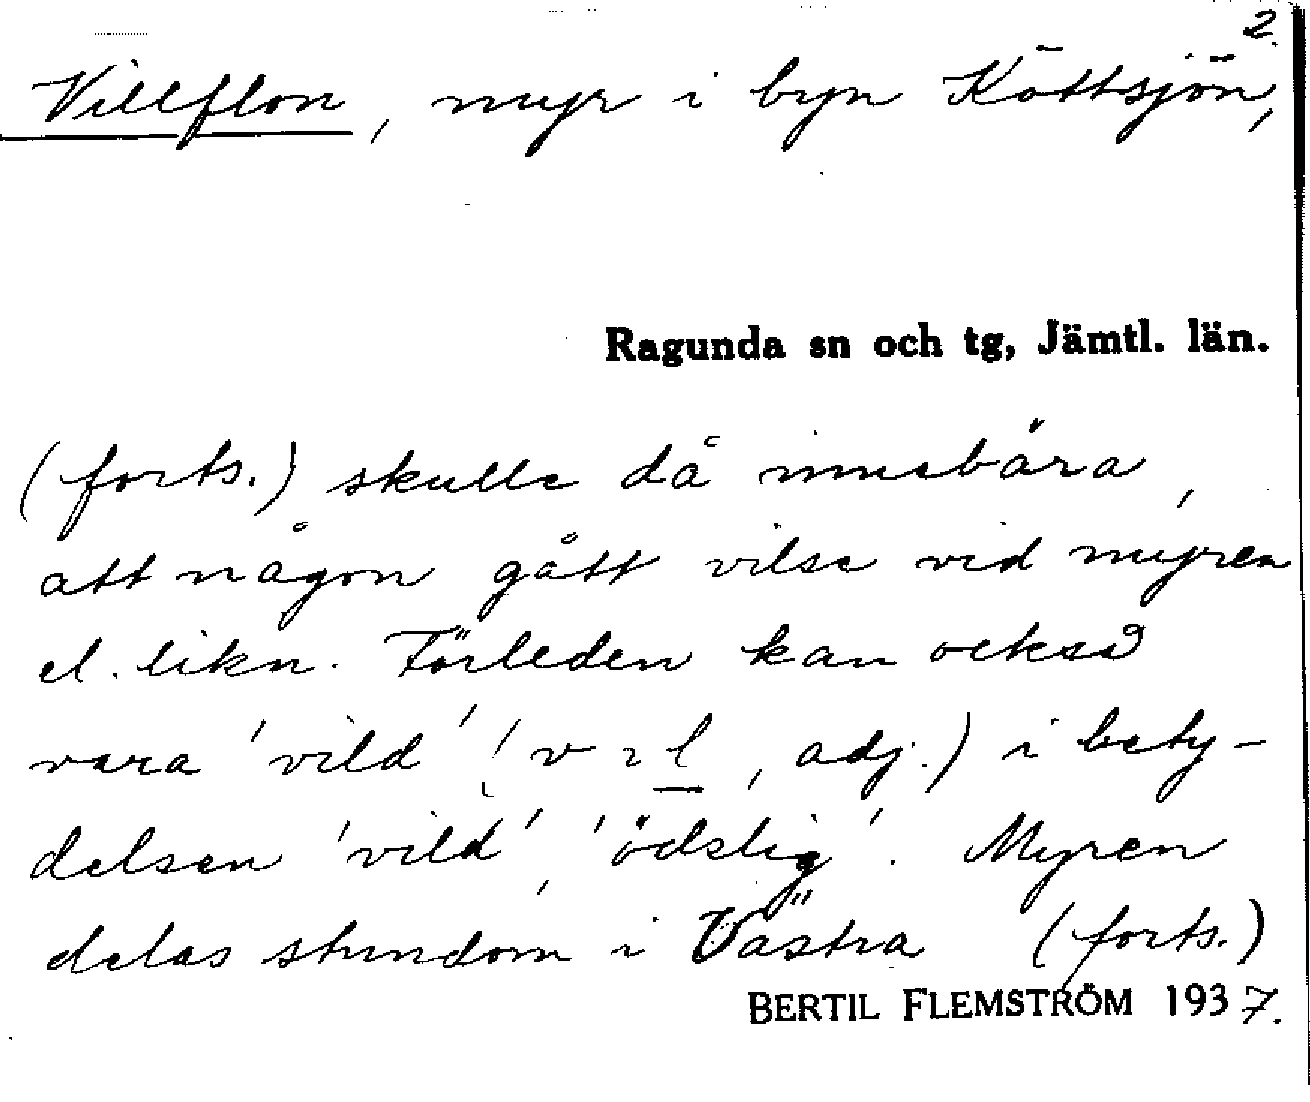 2.
Villflon, myr i byn Köttsjön,
Ragunda sn och tg, Jämtl. län.
(forts.) skulle då innebära,
att någon gått vilse vid myren
el. likn. Förleden kan också
vara 'vild' (vıl, adj.) i bety-
delsen 'vild', 'ödslig'. Myren
delas stundom i Västra (forts.)
BERTIL FLEMSTRÖM 1937.